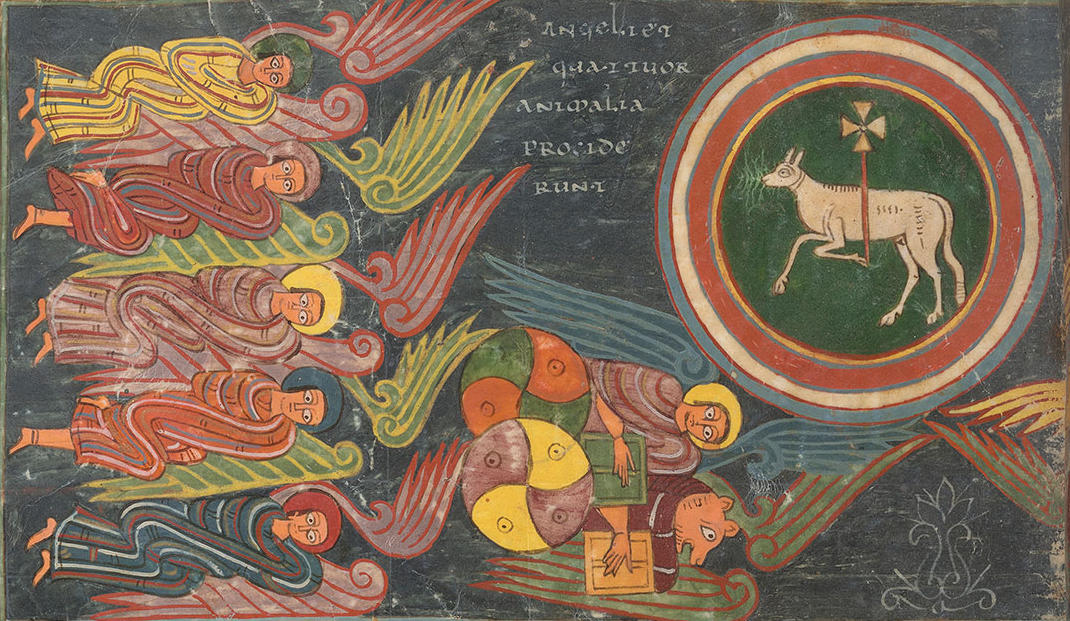 ANGELI ET
QUATTUOR
ANIMALIA
PROCIDE
RUNT